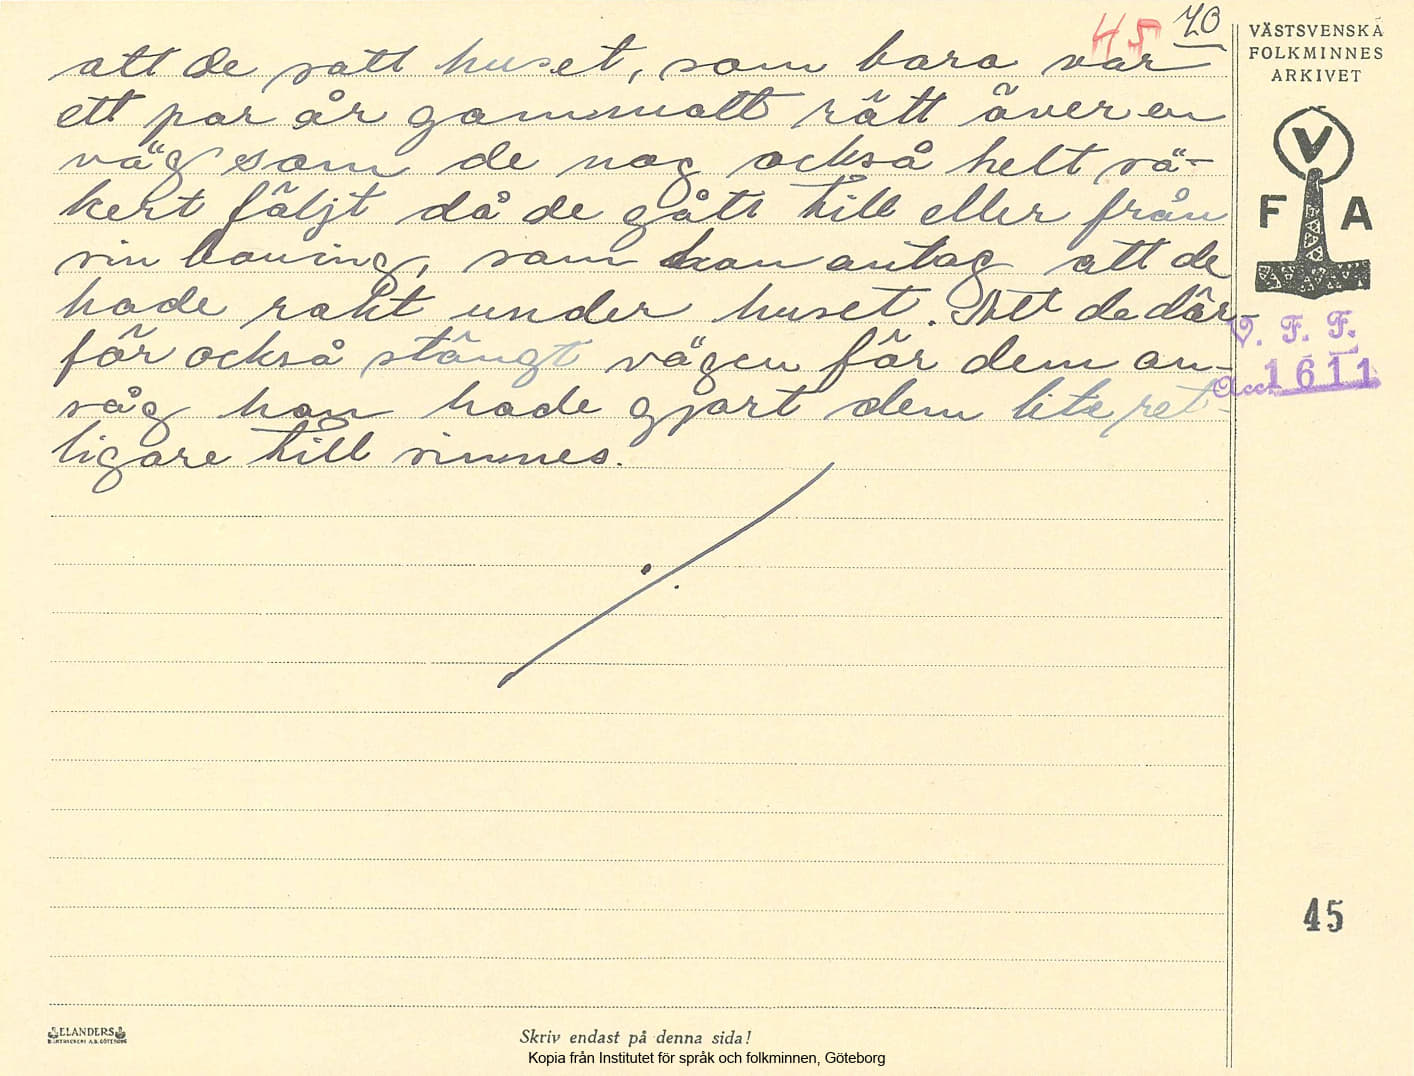 45 70
att de satt huset, som bara var
ett par år gammalt rätt över en
väg som de nog också helt sä-
kert följt då de gått till eller från
sin boning, som han antog att de
hade rakt under huset. Att de där-
för också stängt vägen för dem an-
såg han hade gjort dem lite ret-
ligare till sinnes.
VÄSTSVENSKA
FOLKMINNES
ARKIVET
V
F A
V. F. F.
Acc. 1611
45
ELANDERS
BOKTRYCKERI A.B. GÖTEBORG
Skriv endast på denna sida!
Kopia från Institutet för språk och folkminnen, Göteborg